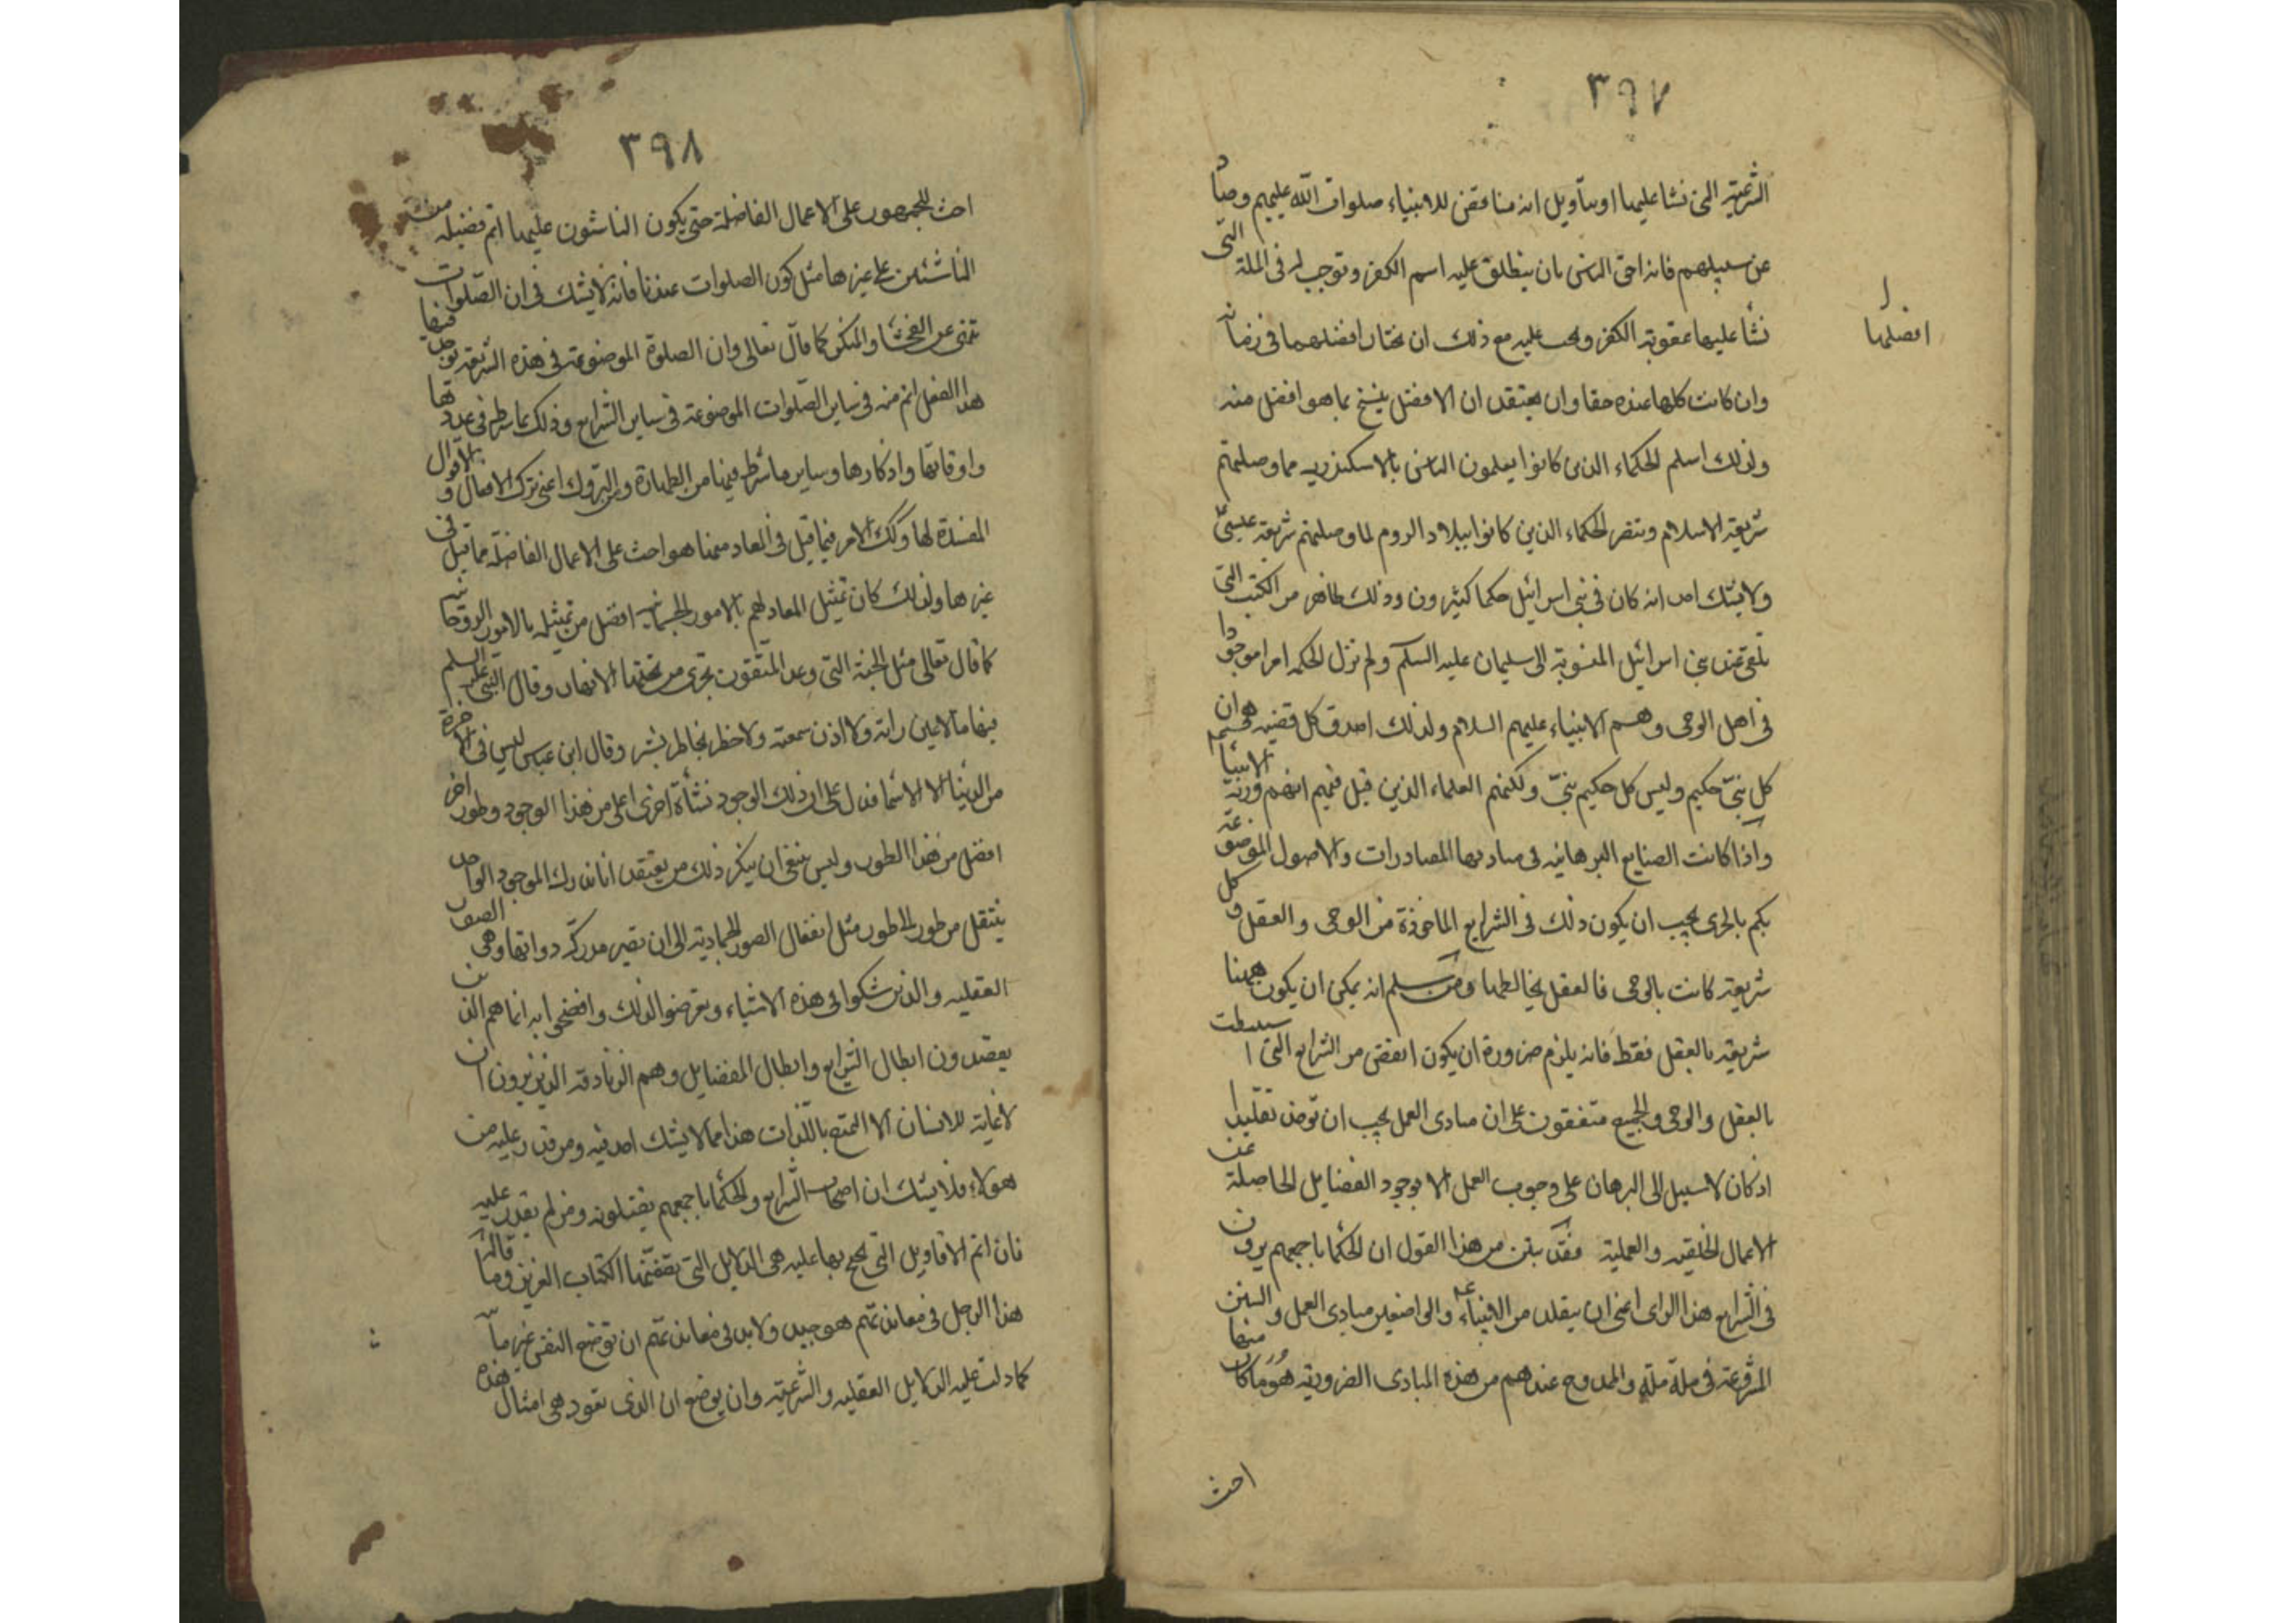 ٣٩٧
الشرعية التي نشا عليها او بتأويل انه مناقض للانبياء صلوات الله عليهم وصادّا
عن سبيلهم فانه احق الناس بان ينطلق عليه اسم الكفر وتوجب له فى الملة التى
نشأ عليها عقوبة الكفر ويجب عليه مع ذلك ان يختار افضلهما فى زمانه
افضلها
وان كانت كلها عنده حقا وان يعتقد ان الافضل ينسخ بما هو افضل منه
ولذلك اسلم الحكماء الذين كانوا يعلمون الناس بالاسكندريه مما وصلتهم
شريعة الاسلام وتنصر الحكماء الذين كانوا ببلاد الروم لما وصلتهم شريعة عيسى
ولا يشك احد انه كان فى بنى اسرائيل حكما كثيرون وذلك ظاهر من الكتب التى
تلقى عند بنى اسرائيل المنسوبة الى سليمان عليه السلام ولم تزل الحكمة امرا موجودا
فى اهل الوحى وهم الانبياء عليهم السلام ولذلك اصدق كل قضيه هى ان
كل نبىّ حكيم وليس كل حكيم نبىّ ولكنهم العلماء الذين قيل فيهم انهم ورثة الانبيأ
واذا كانت الصنايع البرهانيه فى مباديها المصادرات والاصول الموضوعة
بكم بالحرى يجب ان يكون ذلك فى الشرايع الماخوذة من الوحى والعقل وكل
شريعة كانت بالوحى فالعقل يخالطها ومن سلم انه يمكن ان يكون ههنا
شريعة بالعقل فقط فانه يلزم ضرورة ان يكون انقض من الشرايع التى استنبطت
بالعقل والوحى والجميع متفقون على ان مبادى العمل يجب ان توخذ تقليدا
اذ كان لا سبيل الى البرهان على وجوب العمل الا بوجود الفضايل الحاصلة عن
الاعمال الخلقيه والعملية فقد تبين من هذا القول ان الحكما باجمعهم يرون
فى الشرايع هذا الراى اعنى ان يتقلد من الانبياء والواضعين مبادى العمل والسنن
المشروعة فى ملة ملة والممدوح عندهم من هذه المبادى الضروريه هو ما كان منها
احث
٣٩٨
احث للجمهور على الاعمال الفاضلة حتى يكون الناشئون عليها اتم فضيله من
الناشئين على غيرها مثل كون الصلوات عندنا فانه لا يشك فى ان الصلوات
تنهى عن الفحشا والمنكر كما قال تعالى وان الصلوة الموضوعة فى هذه الشريعة يوجد فيها
هذا الفعل اتم منه فى ساير الصلوات الموضوعة فى ساير الشرايع وذلك بما شرط فى عددها
واوقاتها واذكارها وساير ما شرط فيها من الطهارة ومن التروك اعنى ترك الافعال والاقوال
المفسدة لها وكك الامر فيما قيل فى المعاد منها هو احث على الاعمال الفاضلة مما قيل فى
غيرها ولذلك كان تمثيل المعاد لهم بالامور الجسمانيه افضل من تمثيله بالامور الروحانيه
كما قال تعالى مثل الجنة التى وعد المتقون تجرى من تحتها الانهار وقال النبى عليه السلم
فيها ما لا عين رات ولا اذن سمعت ولا خطر بخاطر بشر وقال ابن عباس ليس فى الاخرة
من الدنيا الا الاسما فدل على ان ذلك الوجود نشأة اخرى اعلى من هذا الوجود وطور اخر
افضل من هذا الطور وليس ينبغى ان ينكر ذلك من يعتقد انا ندرك الموجود الواحد
ينتقل من طور الى طور مثل انتقال الصور الجمادية الى ان تصير مدركة ذواتها وهى الصور
العقليه والذين شكوا فى هذه الاشياء وتعرضوا لذلك وافصحوا به انما هم الذين
يقصدون ابطال الشرايع وابطال الفضايل وهم الزنادقة الذين يرون ان
لا غاية للانسان الا التمتع باللذات هذا مما لا يشك احد فيه ومن قدر عليه من
هولاء فلا يشك ان اصحاب الشرايع والحكما باجمعهم يقتلونه ومن لم يقدر عليه
فان اتم الاقاويل التى يحتج بها عليه هى الدلايل التى تضمنها الكتاب العزيز وما قاله
هذا الرجل فى معاندتهم هو جيد ولا بد فى معاندتهم ان توضع النفس غير مائتة
كما دلت عليه الدلايل العقليه والشرعية وان يوضع ان الذى تعود هى امثال هذه